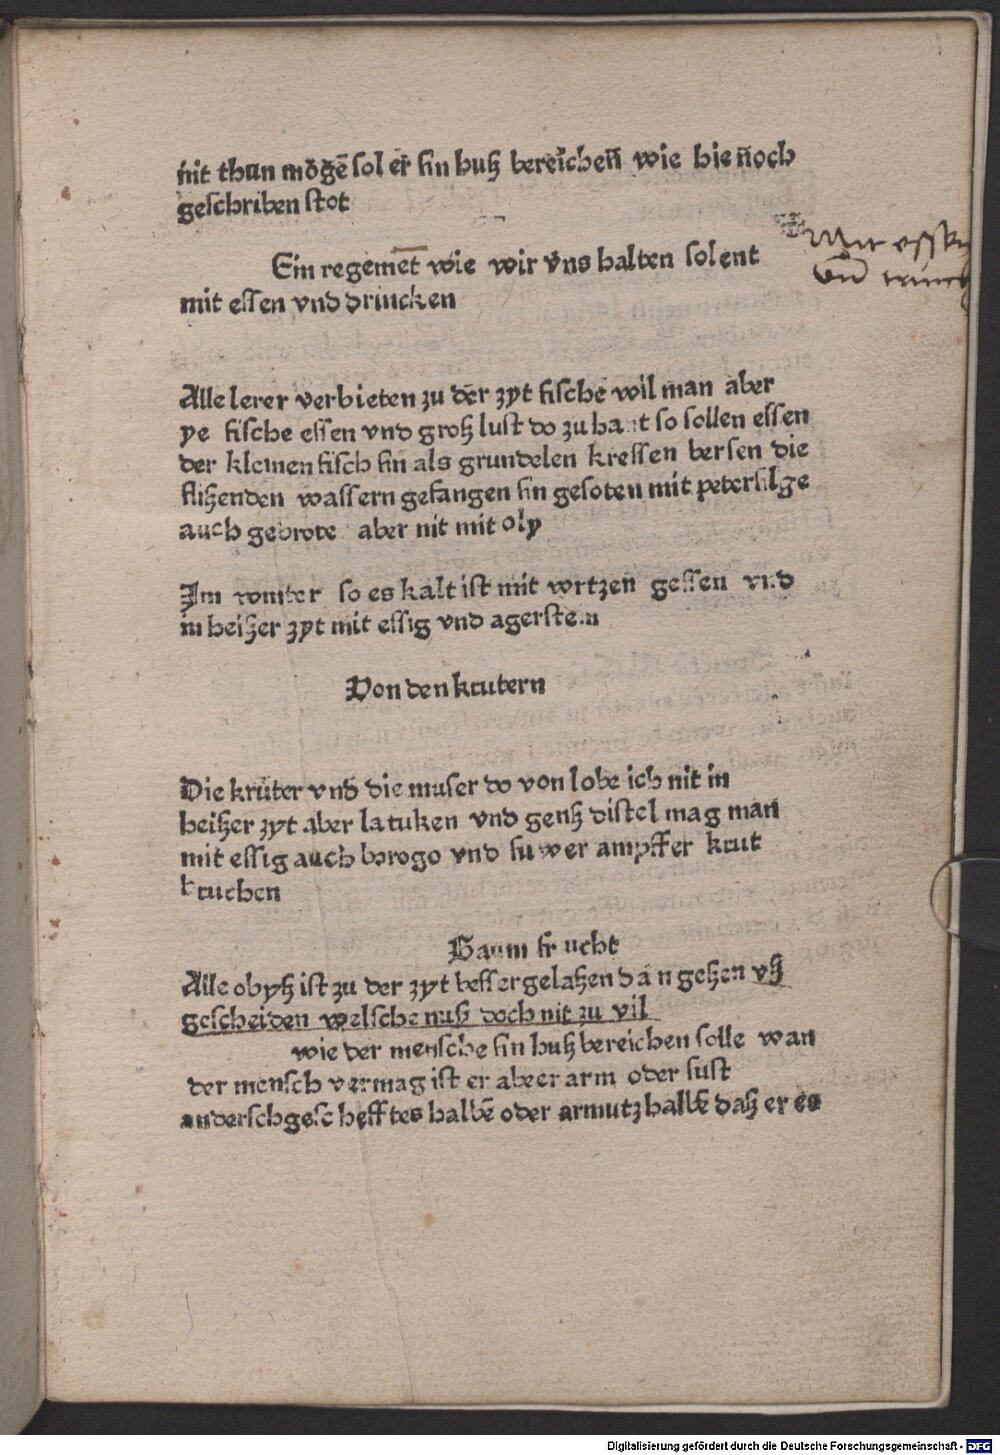 nit thun mögē sol er sin huß bereichen̄ wie hie noch
geschriben stot
Ein regemēt wie wir vns halten solent
mit essen vnd drincken
Mit essen
vn̄
Alle lerer verbieten zu der zyt fische wil man aber
ye fische essen vnd groß lust do zu hat so sollen essen
der kleinen fisch sin als grundelen kressen bersen die
flißenden wassern gefangen sin gesoten mit petersilge
auch gebrote aber nit mit oly
Im winter so es kalt ist mit wrtzen gessen vnd
in heißer zyt mit essig vnd agerstein
Von den krutern
Die krüter vnd die muser do von lobe ich nit in
heißer zyt aber latuken vnd genß distel mag man
mit essig auch borogo vnd suwer ampffer krut
bruchen
Baum frucht
Alle obyß ist zu der zyt besser gelaßen dan geßen vß
gescheiden welsche nuß doch nit zu vil
wie der mensche sin huß bereichen solle wan
der mensch vermag ist er aber arm oder sust
anderschgeschefftes halbē oder armutz halbē daß er es
Digitalisierung gefördert durch die Deutsche Forschungsgemeinschaft - DFG